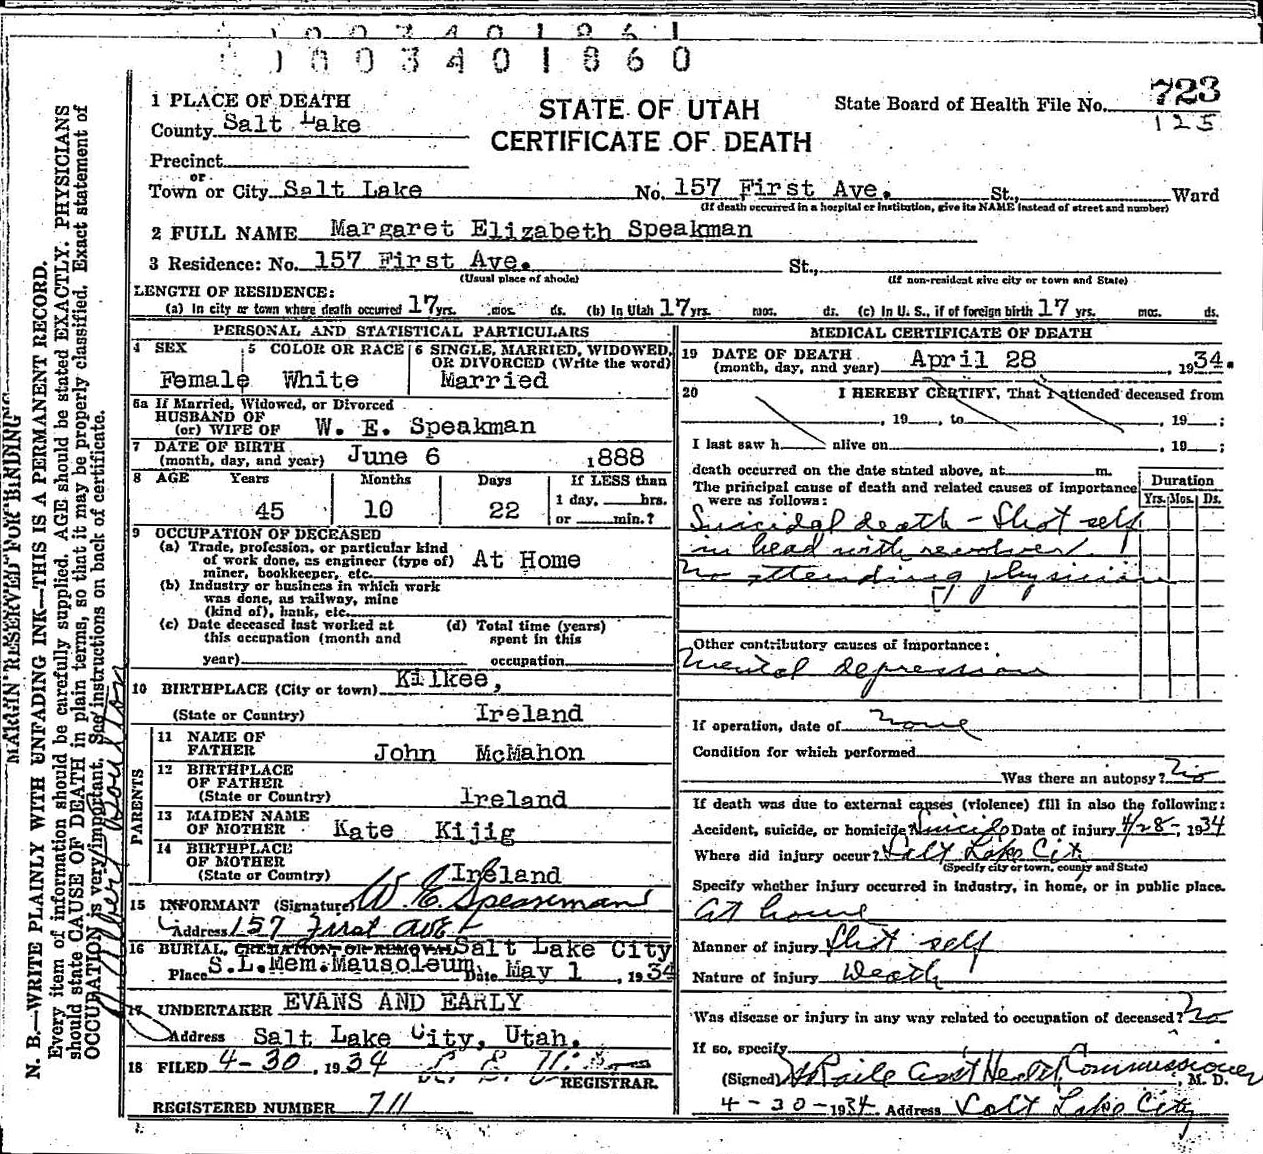 1003401860
1 PLACE OF DEATH
County Salt Lake
STATE OF UTAH
CERTIFICATE OF DEATH
State Board of Health File No. 723
125
Precinct
or
Town or City Salt Lake No. 157 First Ave. St., Ward
(If death occurred in a hospital or institution, give its NAME instead of street and number)
2 FULL NAME Margaret Elizabeth Speakman
3 Residence: No. 157 First Ave. St.,
(Usual place of abode) (If non-resident give city or town and State)
LENGTH OF RESIDENCE:
(a) In city or town where death occurred 17 yrs. mos. ds. (b) In Utah 17 yrs. mos. ds. (c) In U. S., if of foreign birth 17 yrs. mos. ds.
PERSONAL AND STATISTICAL PARTICULARS
4 SEX 5 COLOR OR RACE 6 SINGLE, MARRIED, WIDOWED,
OR DIVORCED (Write the word)
Female White Married
6a If Married, Widowed, or Divorced
HUSBAND OF
(or) WIFE OF W. E. Speakman
7 DATE OF BIRTH
(month, day, and year) June 6 1888
8 AGE Years Months Days If LESS than
1 day, hrs.
45 10 22 or min.?
9 OCCUPATION OF DECEASED
(a) Trade, profession, or particular kind
of work done, as engineer (type of)
miner, bookkeeper, etc. At Home
(b) Industry or business in which work
was done, as railway, mine
(kind of), bank, etc.
(c) Date deceased last worked at (d) Total time (years)
this occupation (month and spent in this
year) occupation
10 BIRTHPLACE (City or town) Kilkee,
(State or Country) Ireland
PARENTS
11 NAME OF
FATHER John McMahon
12 BIRTHPLACE
OF FATHER
(State or Country) Ireland
13 MAIDEN NAME
OF MOTHER Kate Kijig
14 BIRTHPLACE
OF MOTHER
(State or Country) Ireland
15 INFORMANT (Signature) W. E. Speakman
Address 157 First ave
16 BURIAL, CREMATION, OR REMOVAL Salt Lake City
Place S.L.Mem.Mausoleum Date May 1, 1934
17 UNDERTAKER EVANS AND EARLY
Address Salt Lake City, Utah.
18 FILED 4-30, 1934
REGISTRAR.
REGISTERED NUMBER 711
MEDICAL CERTIFICATE OF DEATH
19 DATE OF DEATH
(month, day, and year) April 28, 1934.
20 I HEREBY CERTIFY, That I attended deceased from
, 19 to , 19 ;
I last saw h alive on , 19 ;
death occurred on the date stated above, at m.
The principal cause of death and related causes of importance
were as follows:
Duration
Yrs. Mos. Ds.
Suicidal death - Shot self
in head with revolver
No attending physician
Other contributory causes of importance:
Mental depression
If operation, date of none
Condition for which performed
Was there an autopsy? No
If death was due to external causes (violence) fill in also the following:
Accident, suicide, or homicide? Suicide Date of injury 4/28-1934
Where did injury occur? Salt Lake City
(Specify city or town, county and State)
Specify whether injury occurred in industry, in home, or in public place.
At home
Manner of injury Shot self
Nature of injury Death
Was disease or injury in any way related to occupation of deceased? No
If so, specify
(Signed) Asst Health Commissioner, M. D.
4-30-1934. Address Salt Lake City
MARGIN RESERVED FOR BINDING
N. B.—WRITE PLAINLY WITH UNFADING INK—THIS IS A PERMANENT RECORD.
Every item of information should be carefully supplied. AGE should be stated EXACTLY. PHYSICIANS
should state CAUSE OF DEATH in plain terms, so that it may be properly classified. Exact statement of
OCCUPATION is very important. See instructions on back of certificate.